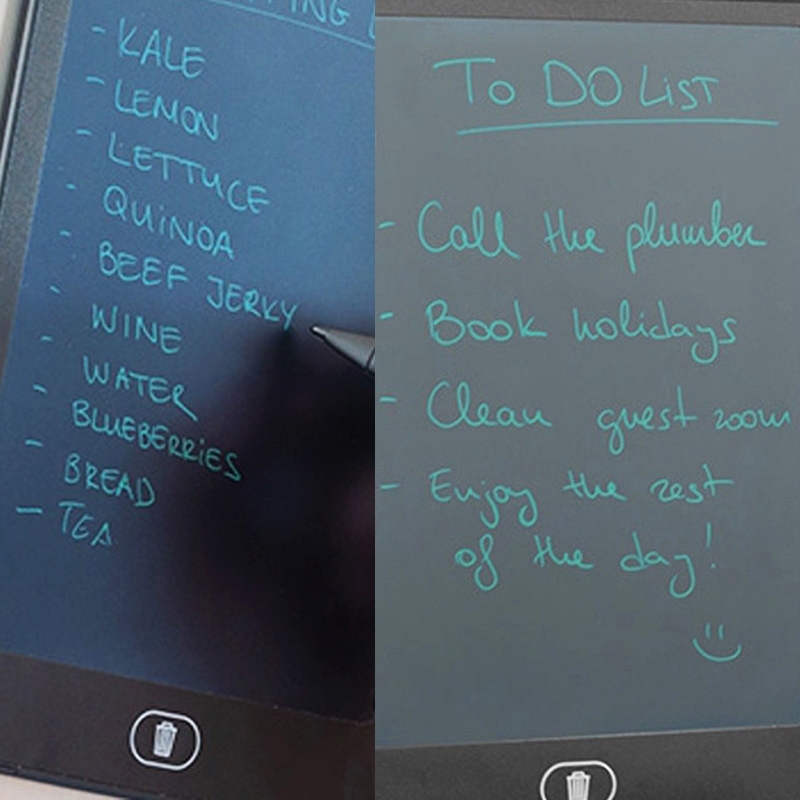 - KALE
- LEMON
- LETTUCE
- QUINOA
- BEEF JERKY
- WINE
- WATER
- BLUEBERRIES
- BREAD
- TEA
TO DO LIST
- Call the plumber
- Book holidays
- Clean guest room
- Enjoy the rest
of the day!